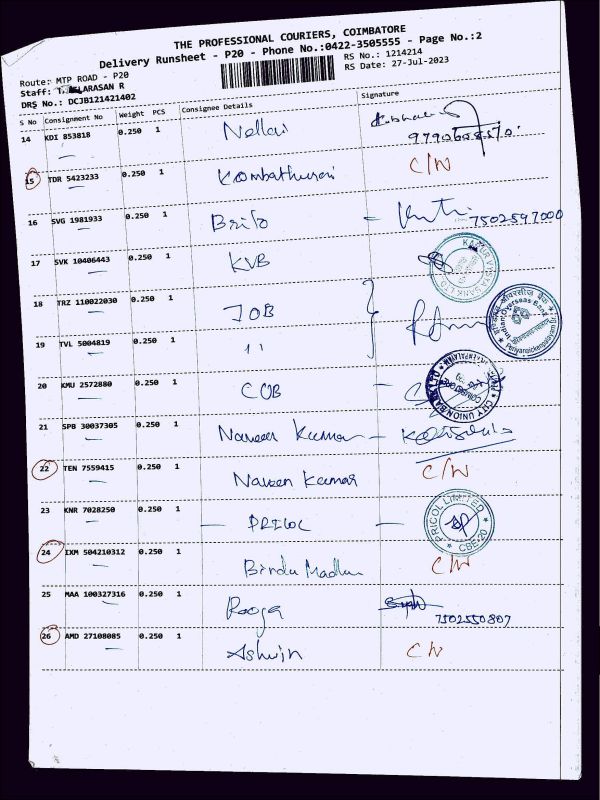 THE PROFESSIONAL COURIERS, COIMBATORE
Delivery Runsheet - P20 - Phone No.:0422-3505555 - Page No.:2
Route: MTP ROAD - P20
RS No.: 1214214
Staff: LARASAN R
RS Date: 27-Jul-2023
DRS No.: DCJB121421402
S No Consignment No Weight PCS Consignee Details Signature
14 KDI 853818 0.250 1 Nellai
15 TDR 5423233 0.250 1 C/N
16 SVG 1981933 0.250 1 7502597000
17 SVK 10406443 0.250 1 KVB
18 TRZ 110022030 0.250 1 IOB
19 TVL 5004819 0.250 1 "
20 KMU 2572880 0.250 1 CUB
CITY UNION BANK LTD
21 SPB 30037305 0.250 1 Naveen Kumar
22 TEN 7559415 0.250 1 Naveen Kumar C/N
23 KNR 7028250 0.250 1 PRICOL
PRICOL LIMITED CBE-20
24 IXM 504210312 0.250 1 Bindu Madhav C/N
25 MAA 100327316 0.250 1 Pooja 7502550807
26 AMD 27108085 0.250 1 Ashwin C/N